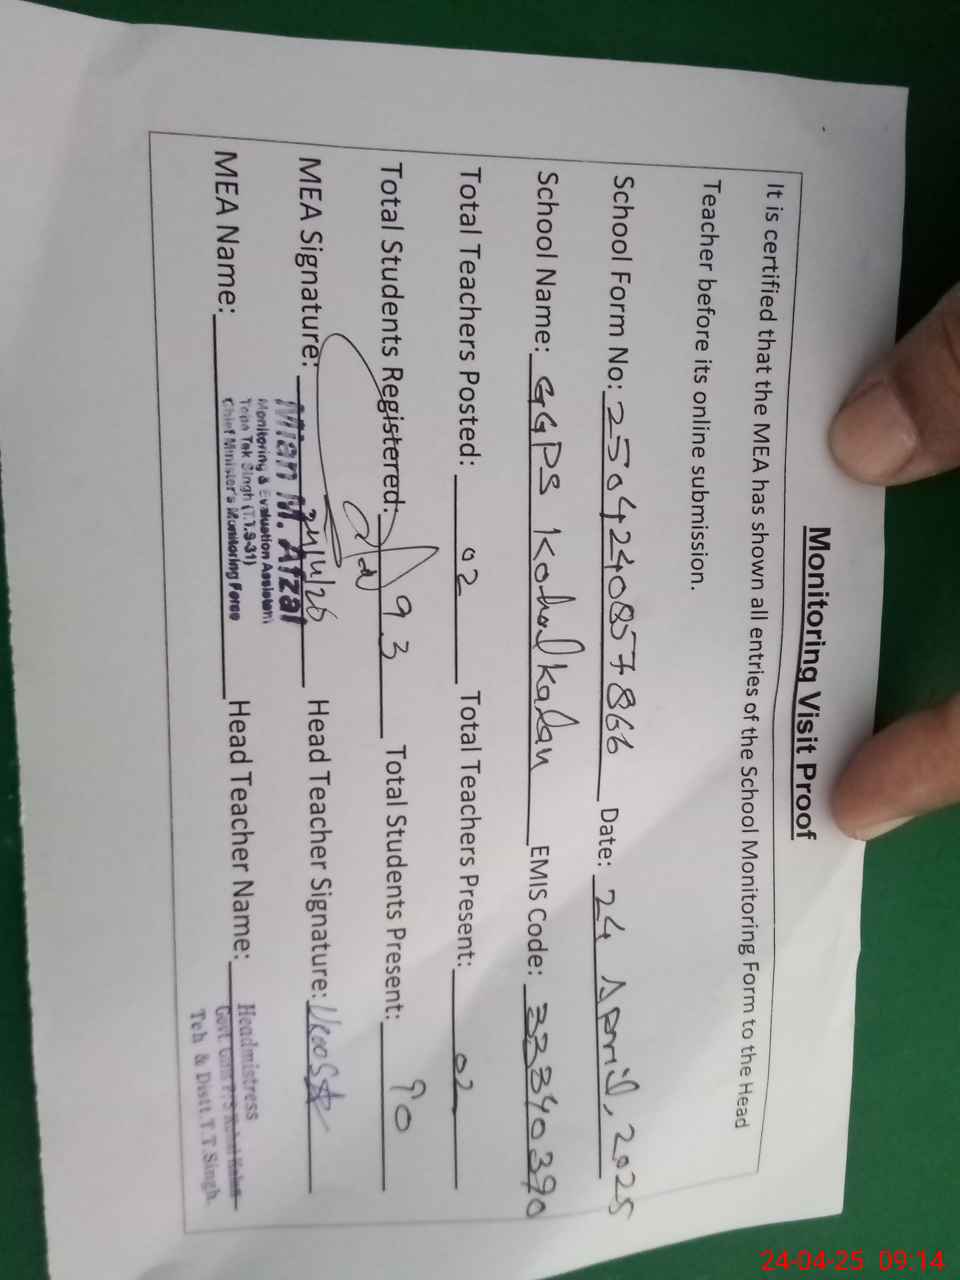 Monitoring Visit Proof
It is certified that the MEA has shown all entries of the School Monitoring Form to the Head
Teacher before its online submission.
School Form No: 2504240857866 Date: 24 April, 2025
School Name: GGPS Kohal Kalan EMIS Code: 33390390
Total Teachers Posted: 02 Total Teachers Present: 02
Total Students Registered: 93 Total Students Present: 90
MEA Signature: Head Teacher Signature:
Mian M. Afzal
Monitoring & Evaluation Assistant
Toba Tek Singh (T.T.S-31)
Chief Minister's Monitoring Force
MEA Name: Head Teacher Name:
Headmistress
Govt. Girls P/S
Teh & Distt. T.T Singh.
24-04-25 09:14